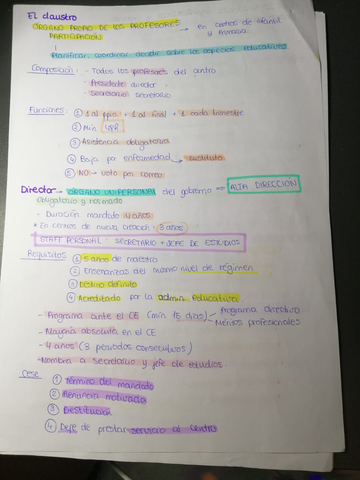 El claustro
ÓRGANO PROPIO DE LOS PROFESORES → en centros de Infantil
PARTICIPACIÓN y Primaria
Planificar, coordinar, decidir sobre los aspectos educativos
Composición: - Todos los profesores del centro
- Presidente: director
- Secretario: secretario
Funciones: ① 1 al ppio + 1 al final + 1 cada trimestre
② Min
③ Asistencia obligatoria
④ Baja por enfermedad → sustituto
⑤ NO → voto por correo
Director → ÓRGANO UNIPERSONAL del gobierno ⇒ ALTA DIRECCIÓN
obligatorio y
- Duración mandato: 4 años
* En centros de nueva creación: 3 años
STAFF PERSONAL: SECRETARIO + JEFE DE ESTUDIOS
Requisitos ① 5 años de maestro
② Enseñanzas del mismo nivel de régimen
③ Destino definitivo
④ Acreditado por la admin. educativa
- Programa ante el CE (min 15 días) - Programa directivo
- Méritos profesionales
- Mayoría absoluta en el CE
- 4 años (3 periodos consecutivos)
- Nombra a secretario y jefe de estudios
Cese ① Término del mandato
② Renuncia motivada
③ Destitución
④ Deje de prestar servicio al centro